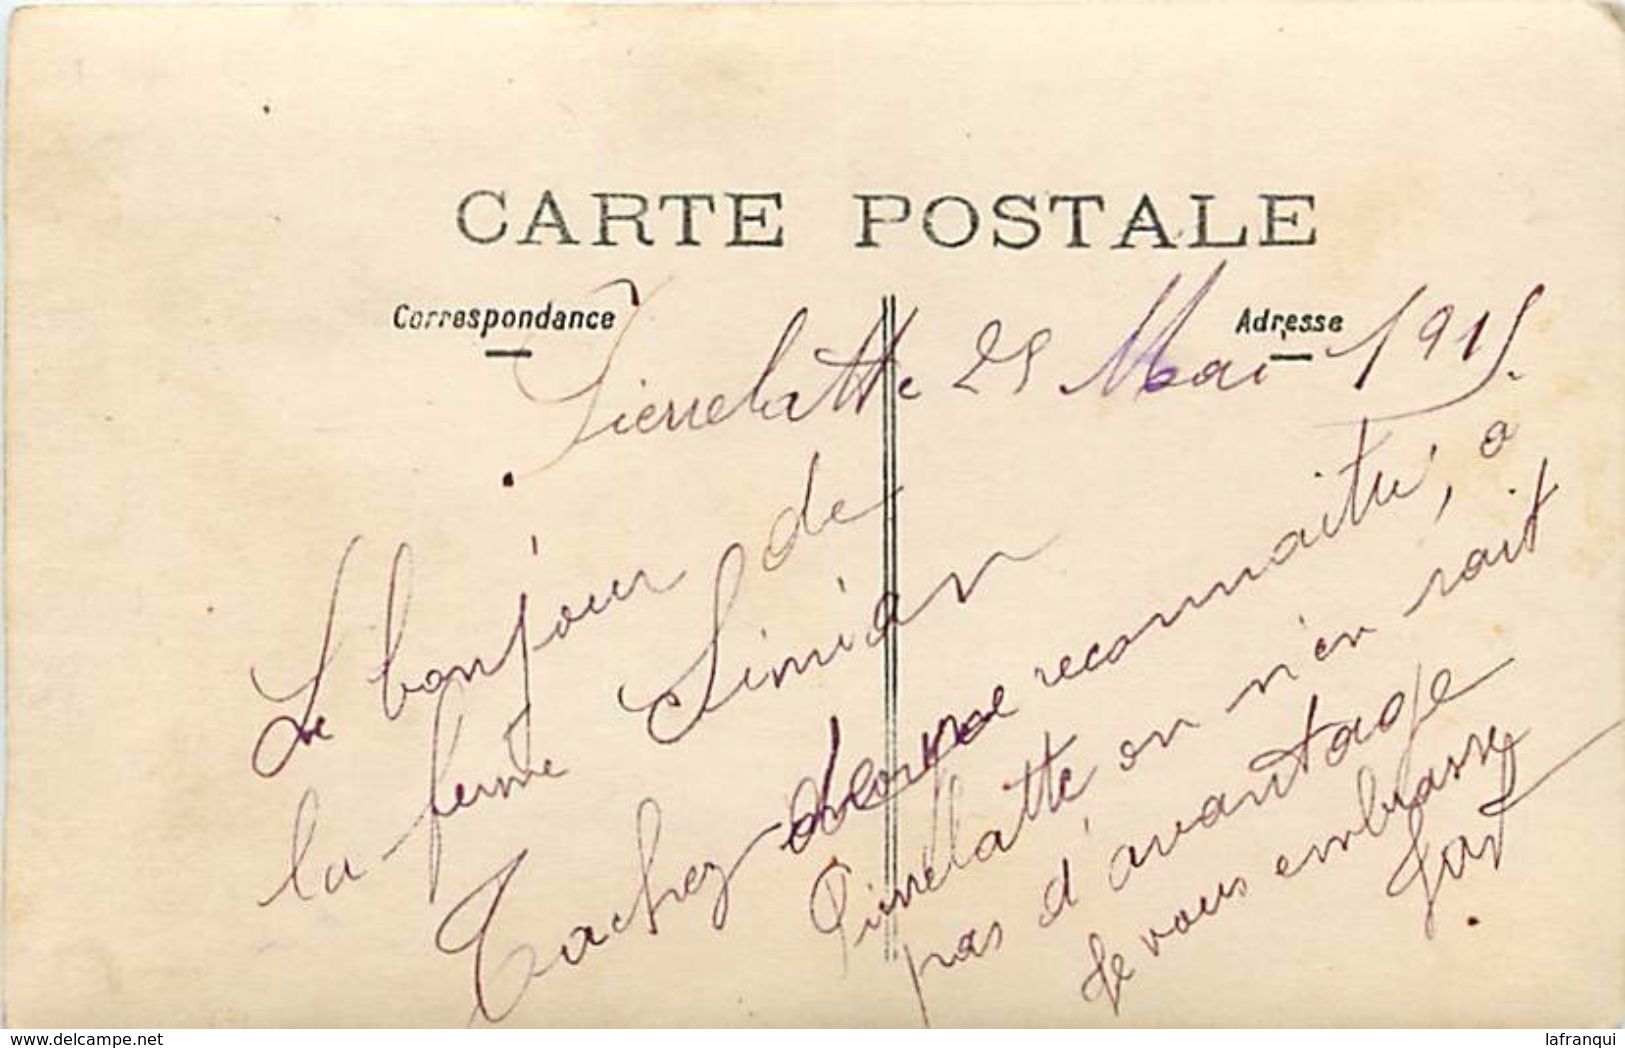 CARTE POSTALE
Correspondance
Adresse
Pierrelatte 25 Mai 1915.
Le bonjour de
la ferme Simian
Tachez de me reconnaitre, a
Pierrelatte on n'en sait
pas d'avantage
Je vous embrasse
fort.
www.delcampe.net
lafranqui